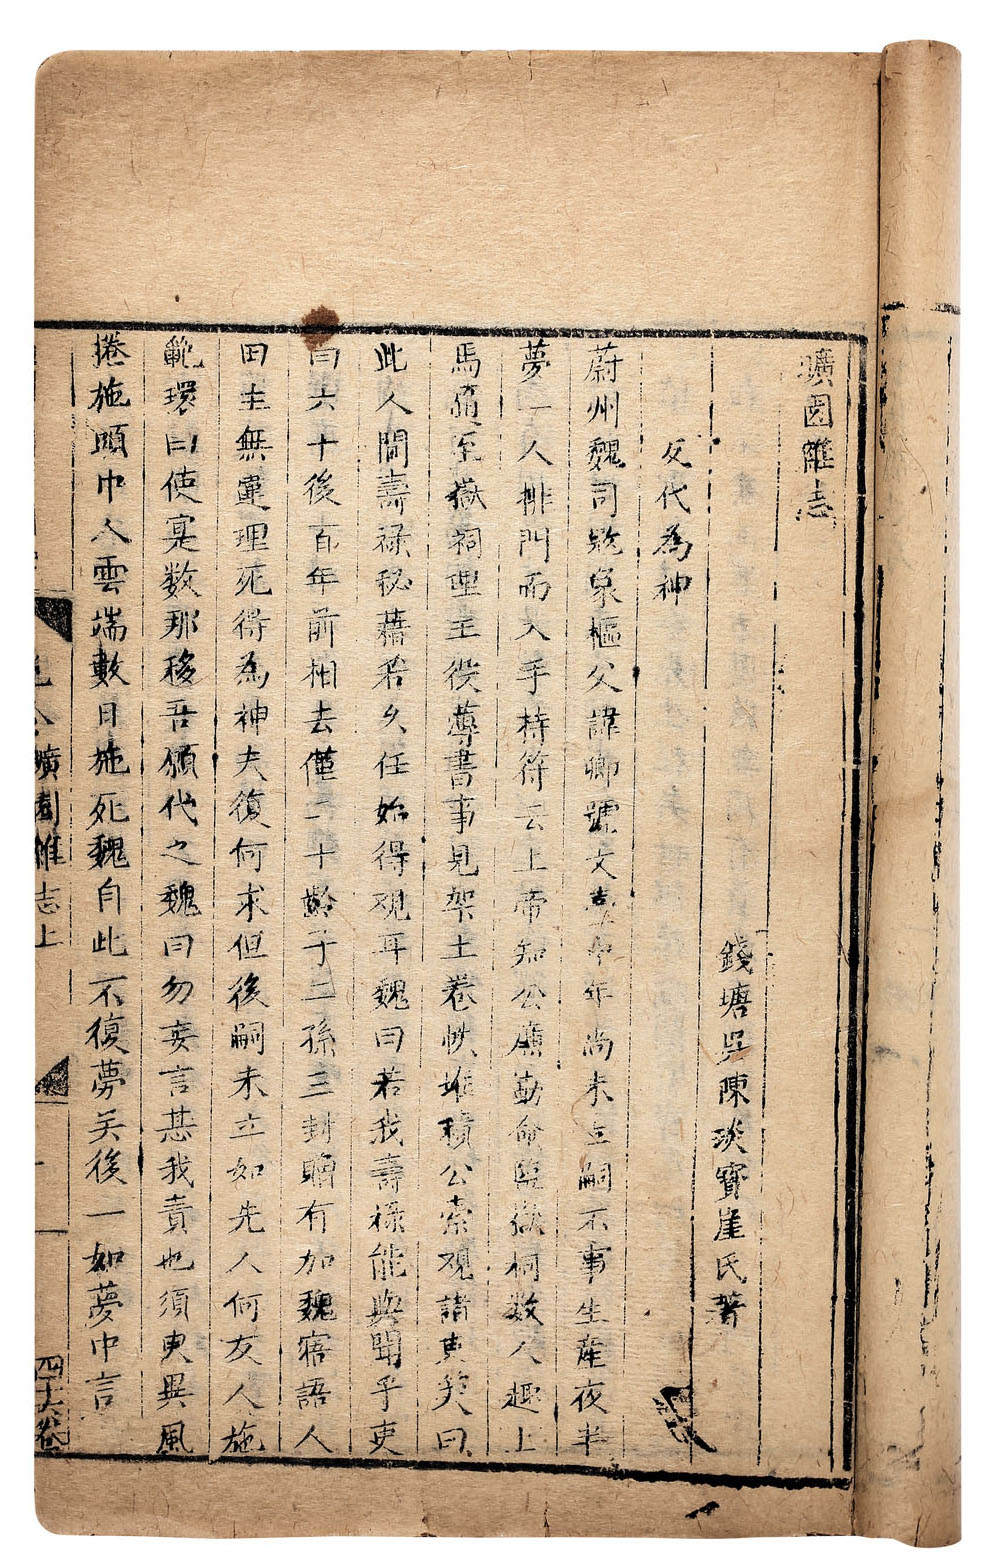 曠園雜志
錢塘吳陳淡寶崖氏著
友代為神
蔚州魏司寇象樞父諱卿號文臺中年尚未立嗣不事生產夜半
夢一人排門而入手持符云上帝知公廉勤命監嶽祠數人趣上
馬頃至嶽祠理主役薄書事見架上卷帙堆積公索观諸吏笑曰
此人間壽祿秘藉若久任始得观耳魏曰若我壽祿能與聞乎吏
曰六十後百年前相去僅二十齡子三孫三封贈有加魏寤語人
田主無違理死得為神夫復何求但後嗣未立如先人何友人施
範環曰使寔数那移吾願代之魏曰勿妄言甚我責也須臾異風
捲施頭巾入雲端數日施死魏自此不復夢矣後一如夢中言
曠園雜志上
四十六卷